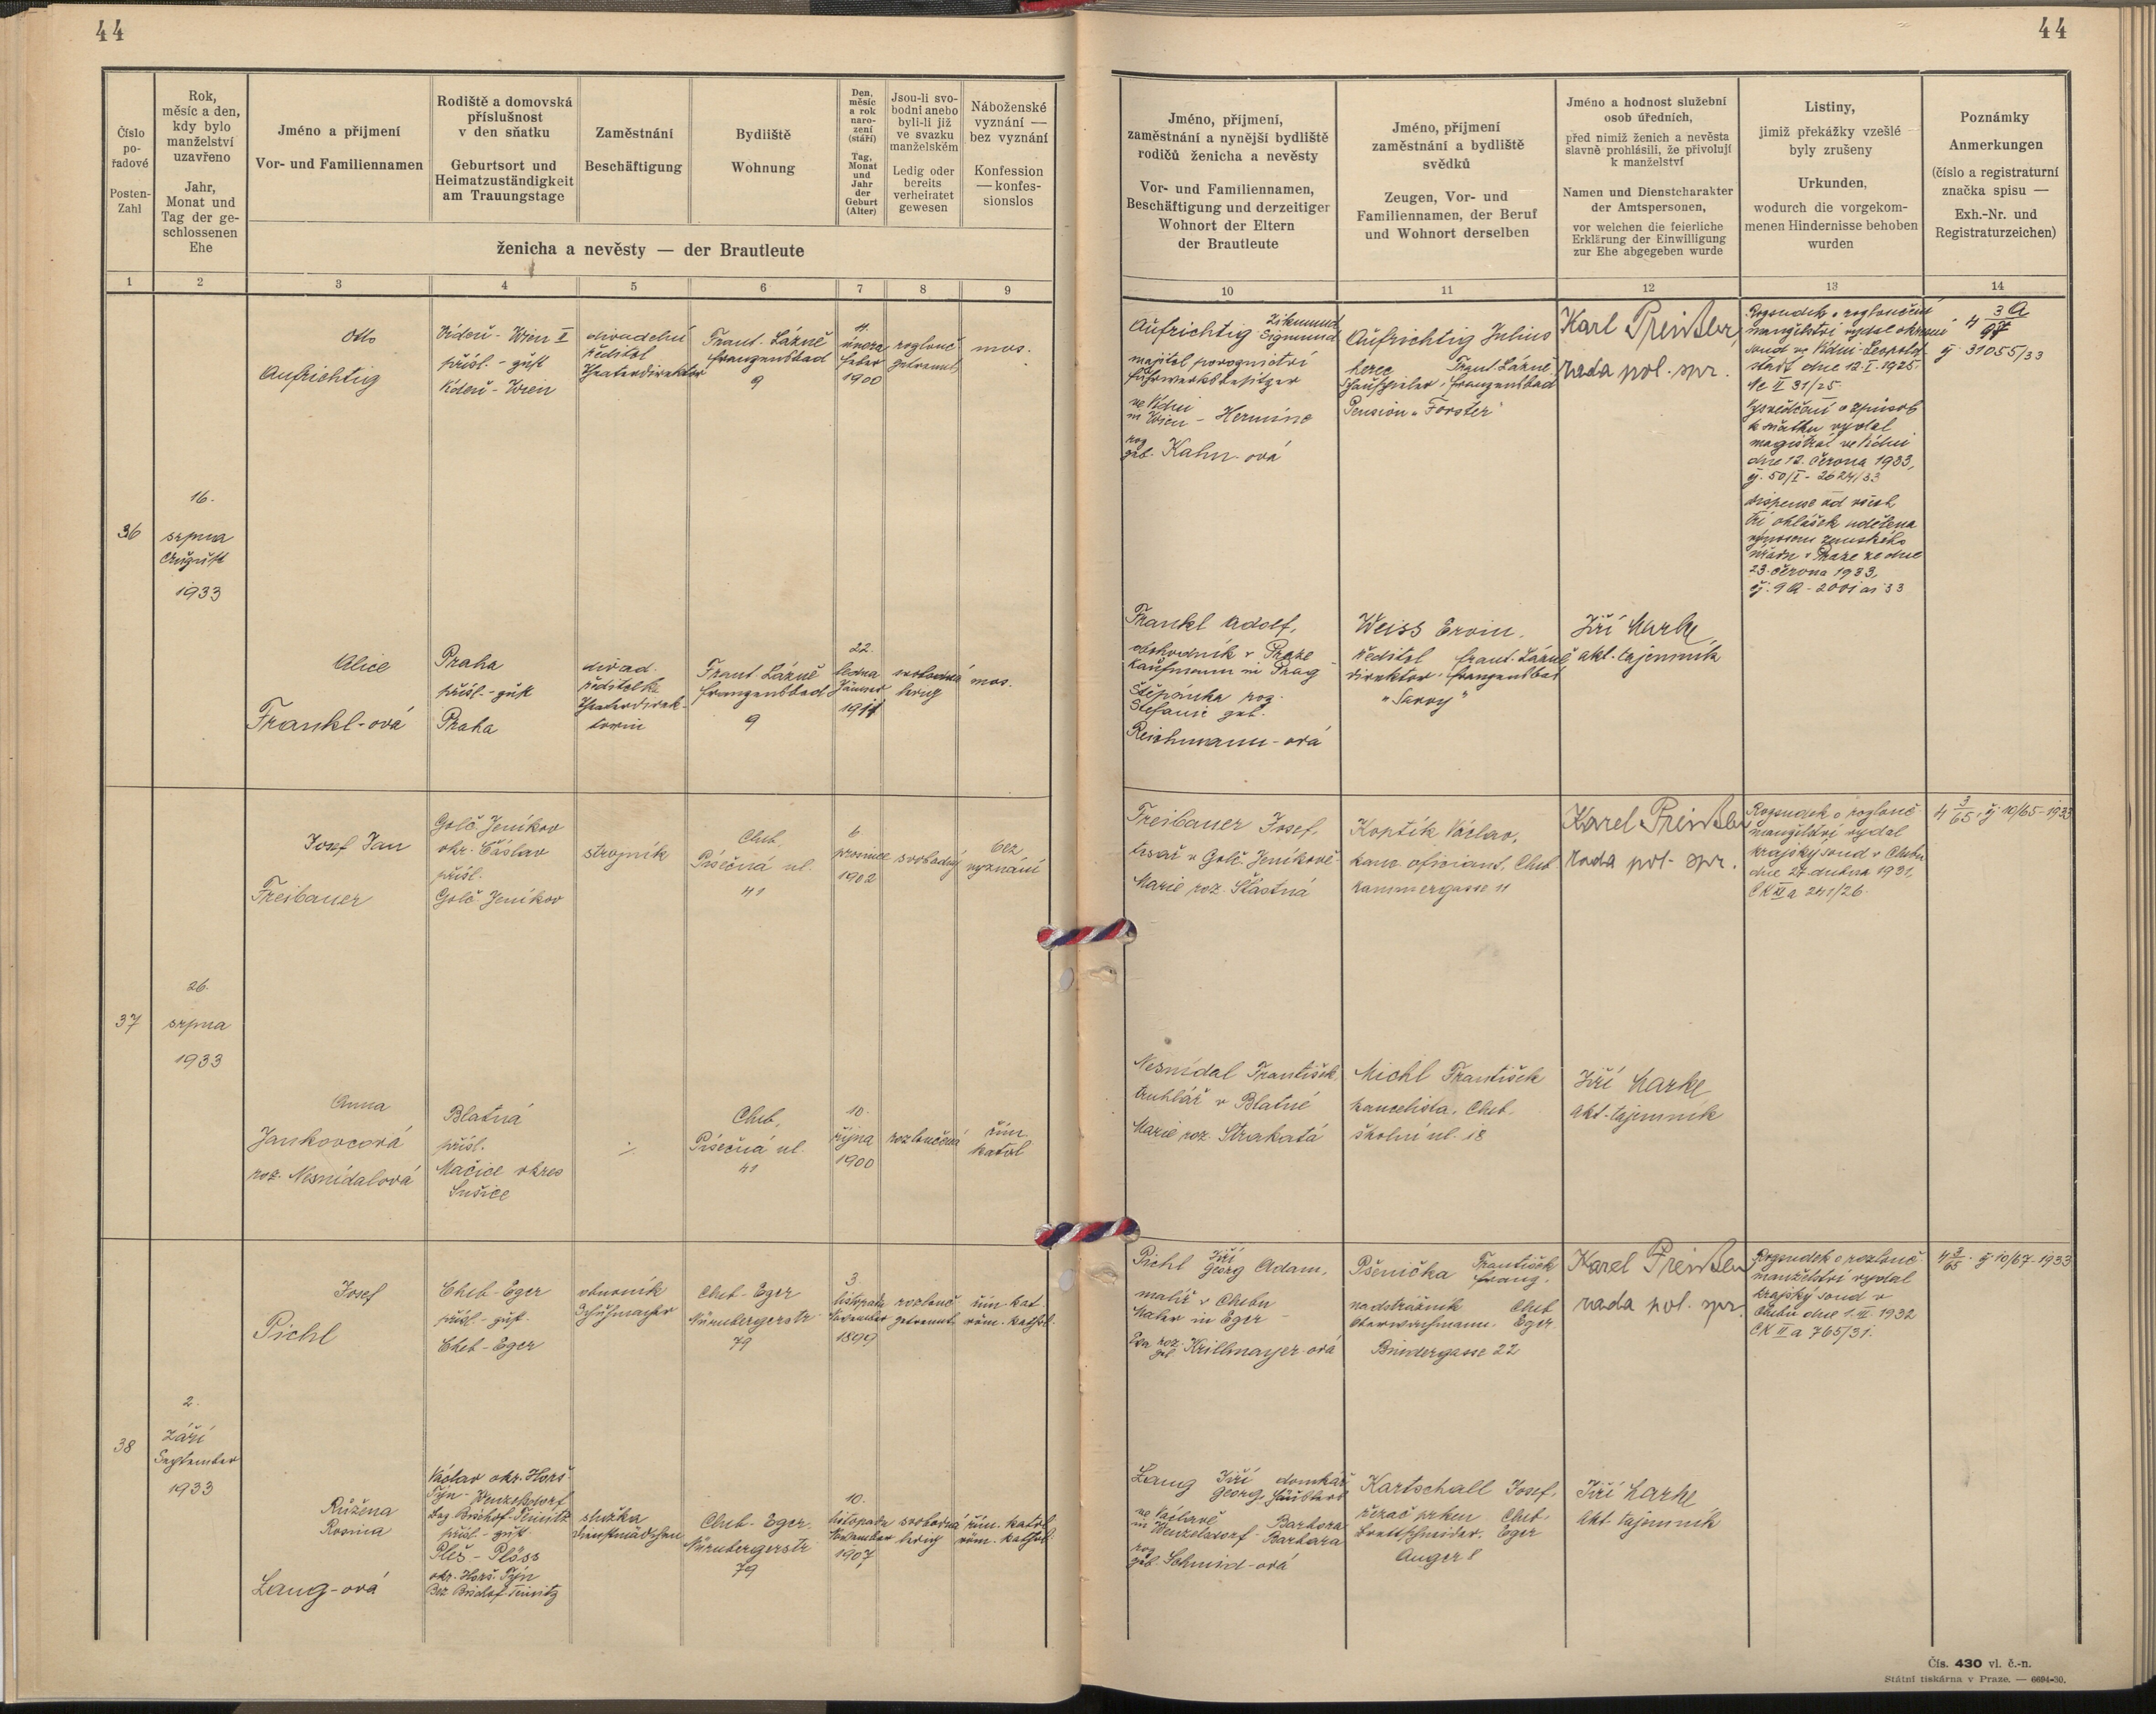 44
44
Číslo
po-
řadové
Posten-
Zahl
Rok,
měsíc a den,
kdy bylo
manželství
uzavřeno
Jahr,
Monat und
Tag der ge-
schlossenen
Ehe
Jméno a přijmení
Vor- und Familiennamen
Rodiště a domovská
příslušnost
v den sňatku
Geburtsort und
Heimatzuständigkeit
am Trauungstage
Zaměstnání
Beschäftigung
Bydliště
Wohnung
Den,
měsíc
a rok
naro-
zení
(stáří)
Tag,
Monat
und
Jahr
der
Geburt
(Alter)
Jsou-li svo-
bodni anebo
byli-li již
ve svazku
manželském
Ledig oder
bereits
verheiratet
gewesen
Náboženské
vyznání —
bez vyznání
Konfession
— konfes-
sionslos
ženicha a nevěsty — der Brautleute
Jméno, přijmení,
zaměstnání a nynější bydliště
rodičů ženicha a nevěsty
Vor- und Familiennamen,
Beschäftigung und derzeitiger
Wohnort der Eltern
der Brautleute
Jméno, přijmení
zaměstnání a bydliště
svědků
Zeugen, Vor- und
Familiennamen, der Beruf
und Wohnort derselben
Jméno a hodnost služební
osob úředních,
před nimiž ženich a nevěsta
slavně prohlásili, že přivolují
k manželství
Namen und Dienstcharakter
der Amtspersonen,
vor welchen die feierliche
Erklärung der Einwilligung
zur Ehe abgegeben wurde
Listiny,
jimiž překážky vzešlé
byly zrušeny
Urkunden,
wodurch die vorgekom-
menen Hindernisse behoben
wurden
Poznámky
Anmerkungen
(číslo a registraturní
značka spisu —
Exh.-Nr. und
Registraturzeichen)
1 2 3 4 5 6 7 8 9 10 11 12 13 14
36
16.
srpna
August
1933
Otto
Aufrichtig
Vídeň - Wien II
přísl. - zust
Vídeň - Wien
divadelní
ředitel
Theaterdirektor
Frant. Lázně
Franzensbad
9
11.
února
Feber
1900
rozlouč
getrennt
mos.
Aufrichtig Zikmund
Sigmund
majitel povoznictví
Fuhrwerksbesitzer
ve Vídni
in Wien - Hermine
roz.
geb. Kahn-ová
Aufrichtig Julius
herec Frant. Lázně
Schauspieler, Franzensbad
Pension „Forster"
Karl Preißler,
rada pol. spr.
Rozsudek o rozloučení
manželství vydal okresní
soud ve Vídni-Leopold-
stadt dne 12.I.1925.
Nc II 31/25.
Vysvědčení o způsob
k sňatku vydal
magistrát ve Vídni
dne 12. června 1933,
čj. 50/I - 2624/33
Dispense od všech
tří ohlášek udělena
výnosem zemského
úřadu v Praze ze dne
23. června 1933,
4 3a
čj 31055/33
Alice
Frankl-ová
Praha
přísl. - zust
Praha
divad.
ředitelka
Theaterdirek-
torin
Frant. Lázně
Franzensbad
9
22.
ledna
Jänner
1911
svobodná
ledig
mos.
Frankl Adolf,
obchodník v Praze
Kaufmann in Prag
Štěpánka roz.
Stefanie geb.
Reichmann-ová
Weiss Ervin,
ředitel Frant. Lázně
Direktor, Franzensbad
„Savoy"
Jiří Marke,
akt. tajemník
37
26.
srpna
1933
Josef Jan
Freibauer
Golč. Jeníkov
okr. Čáslav
přísl.
Golč. Jeníkov
strojník
Cheb,
Písečná ul.
41
6
prosince
1902
svobodný
bez
vyznání
Freibauer Josef,
tesař v Golč. Jeníkově
Marie roz. Šťastná
Koptík Václav,
kanc. oficiant, Cheb
Kammergasse 11
Karel Preißler
rada pol. spr.
Rozsudek o rozlouč.
manželství vydal
krajský soud v Chebu
dne 27. dubna 1931,
CK II a 241/26.
4 3/65, čj 10/65-1933
Anna
Jankovcová
roz. Nesnídalová
Blatná
přísl.
Mačice okres
Sušice
Cheb,
Písečná ul.
41
10.
října
1900
rozloučená
řím.
katol
Nesnídal František,
truhlář v Blatné
Marie roz. Strakatá
Michl František
kancelista, Cheb,
školní ul. 18
Jiří Marke
akt. tajemník
38
2.
Září
September
1933
Josef
Pichl
Cheb - Eger
přísl. - zust.
Cheb - Eger
obuvník
Schuhmacher
Cheb - Eger
Nürnbergerstr
79
3
listopadu
November
1899
rozlouč
getrennt
řím. kat.
röm. kathol.
Pichl Jiří
Georg Adam,
malíř v Chebu
Maler in Eger -
Eva roz.
geb. Krillmayer-ová
Pšenička František
Franz,
nadstrážník Cheb
Oberwachmann, Eger.
Brudergasse 22
Karel Preißler
rada pol. spr.
Rozsudek o rozlouč.
manželství vydal
krajský soud v
Chebu dne 1.VI.1932
CK II a 765/31.
4 3/65. čj 10/67-1933
Růžena
Rosina
Lang-ová
Václav okr. Horš.
Týn - Wenzelsdorf
Bez. Bischof-Teinitz
přísl. - zust
Pleš - Plöss
okr. Horš. Týn
Bez Bischof Teinitz
služka
Dienstmädchen
Cheb - Eger,
Nürnbergerstr
79
10.
listopadu
November
1907
svobodná
ledig
řím. katol.
röm. kathol.
Lang Jiří domkář
Georg, Häusler
ve Václavě Barbora
in Wenzelsdorf - Barbara
roz
geb. Schmid-ová
Kartschall Josef,
řezač prken Cheb,
Brettschneider, Eger
Anger 8
Jiří Marke
akt. tajemník
Čís. 430 vl. č.-n.
Státní tiskárna v Praze. — 6694-30.